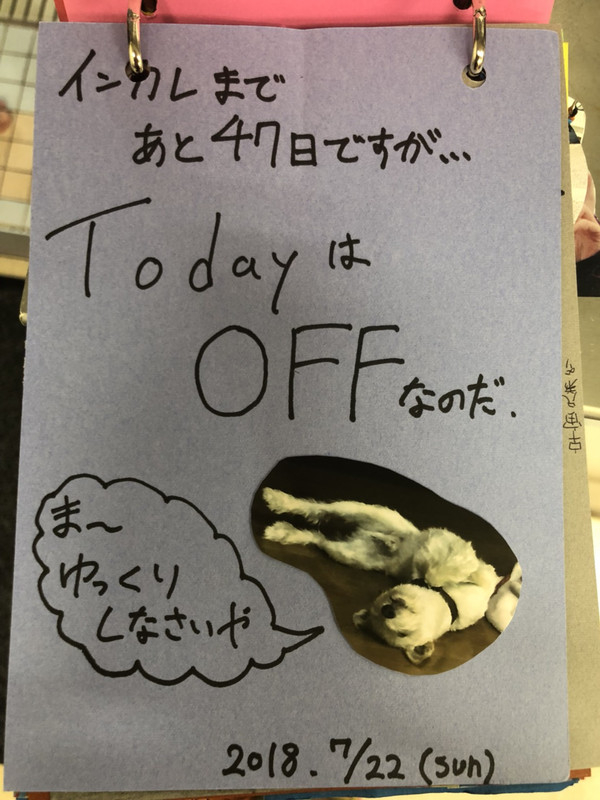 インカレまで
あと47日ですが…
Todayは
OFFなのだ.
ま〜
ゆっくり
しなさいや
2018.7/22(sun)